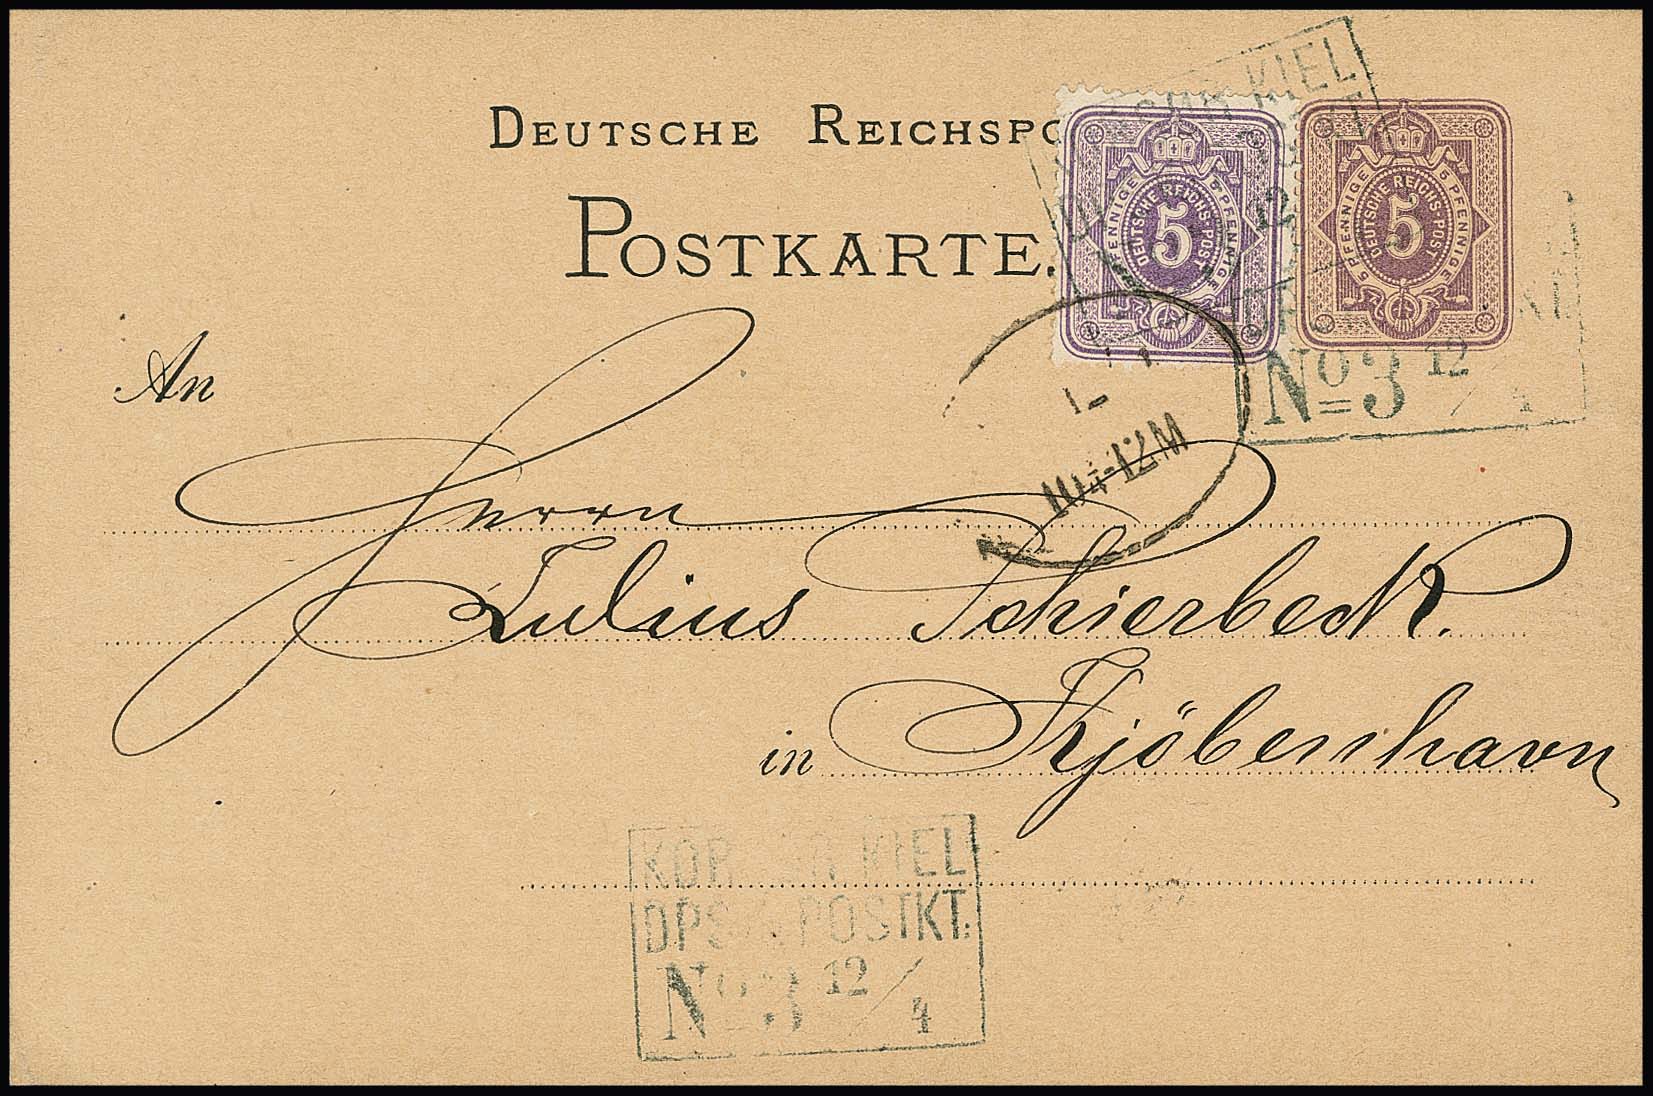 DEUTSCHE REICHSPO
POSTKARTE.
5 PFENNIGE
DEUTSCHE REICHS-POST
5
5 PFENNIGE 5 PFENNIGE
DEUTSCHE REICHS-POST
5
KIEL
12
No 3 12/4
10¼-12M
An
Herrn
Julius Schierbeck.
in Kjöbenhavn
KIEL
DPSK POSTKT.
No 3 12/4